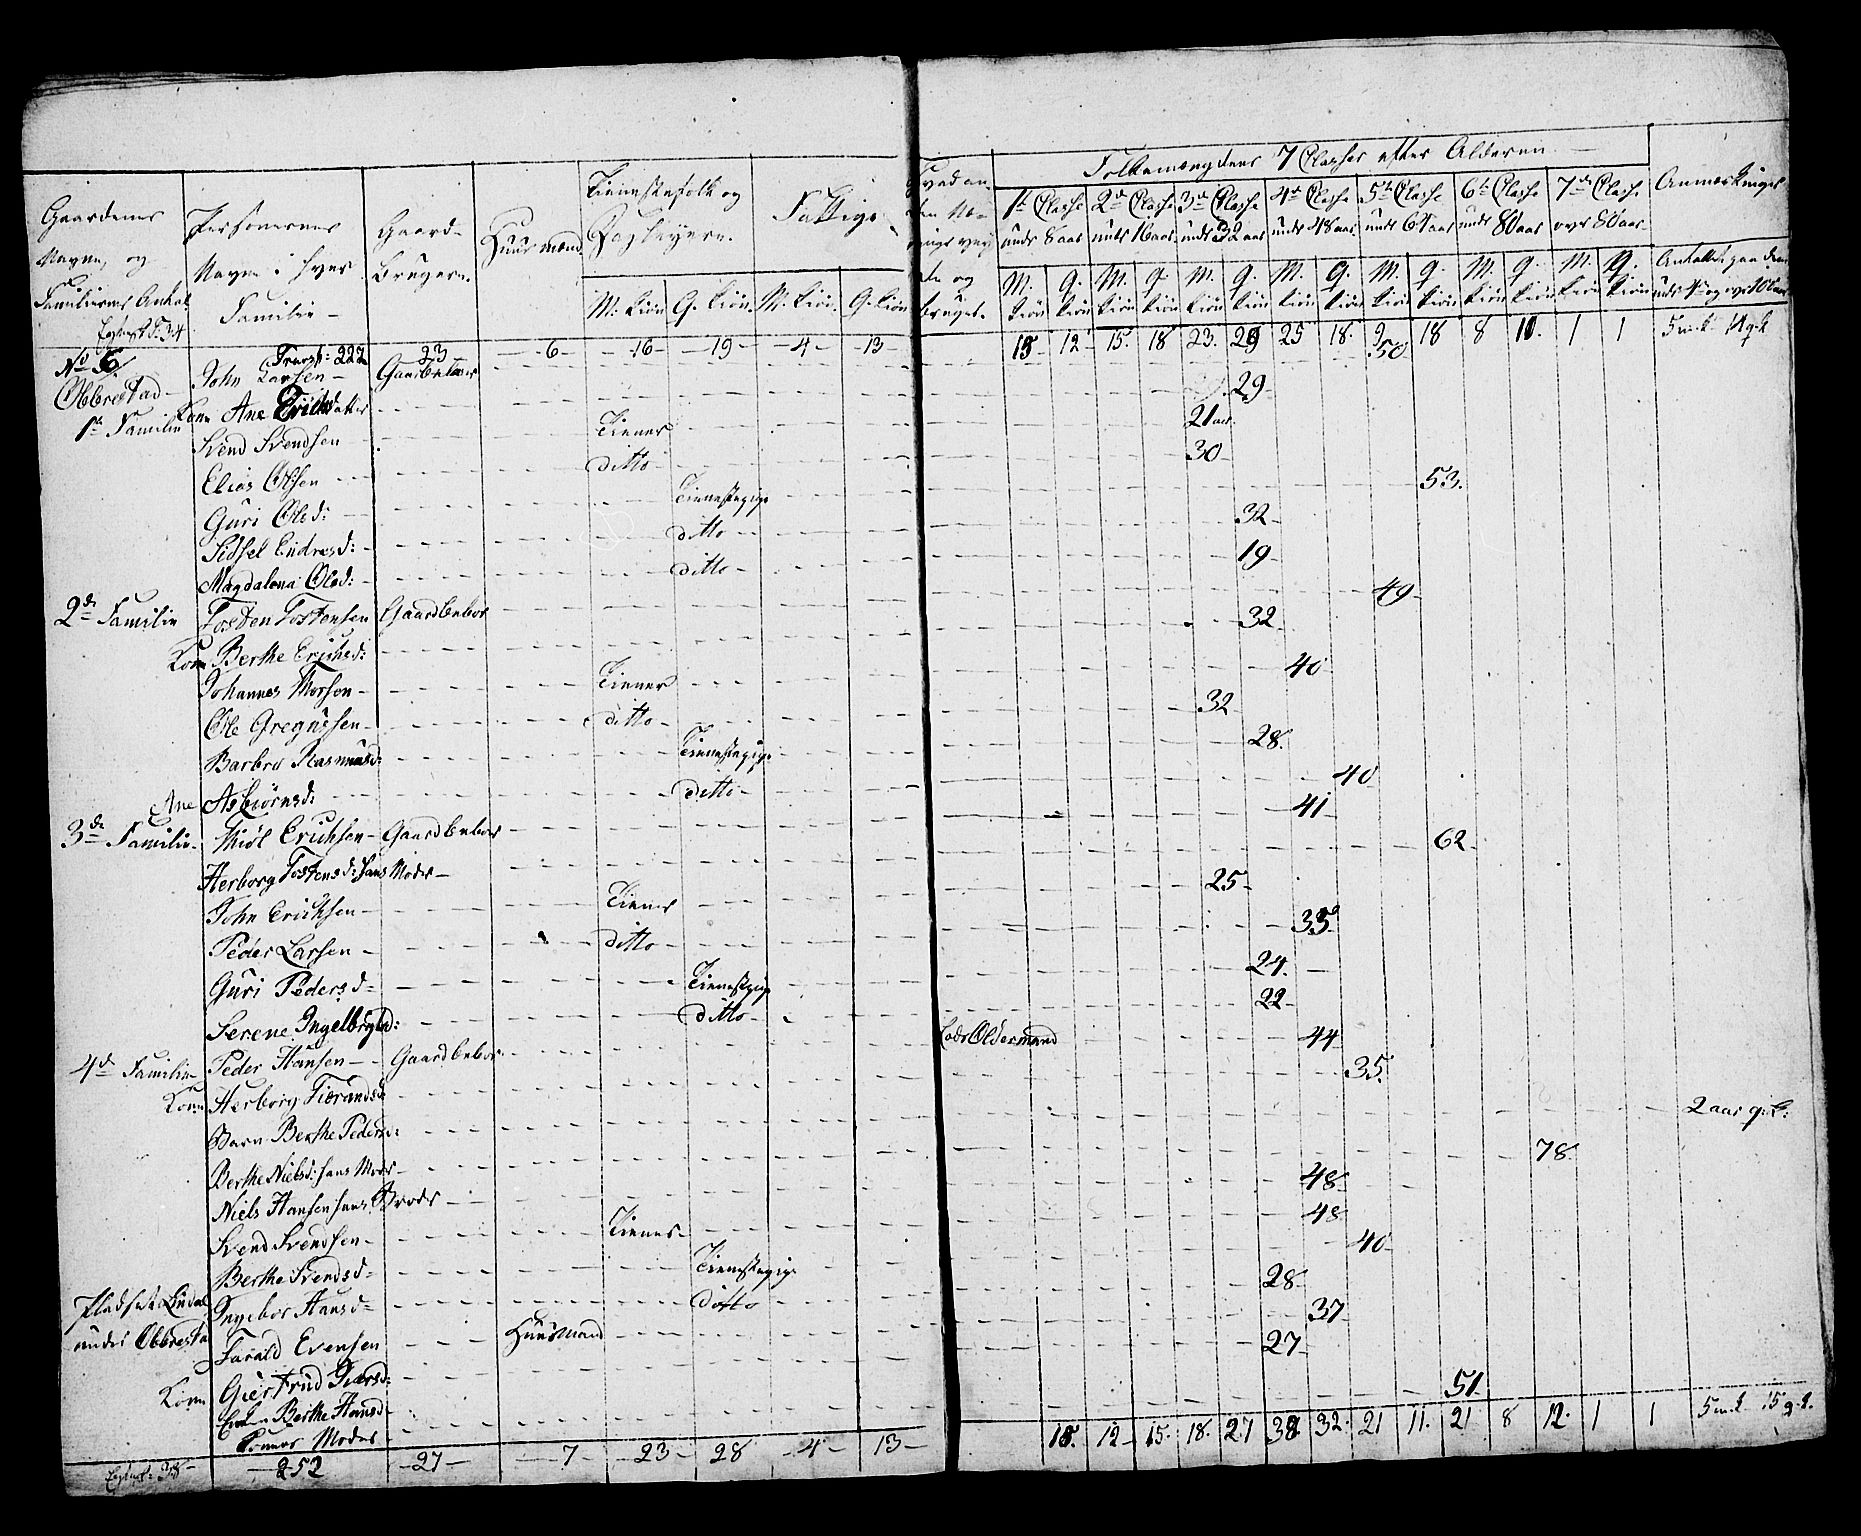 Folkemængdens 7 Classer efter Alderen
Gaardenes Navne, og Familiernes Antal
Personernes Navne i hver Familie
Gaard-brugere.
Huusmænd
Tienestefolk og
Fattige
M. Kiön G. Kiön M. Kiön. G. Kiön
1te Classe under 8 aar
2de Classe under 16 aar
3de Classe under 32 aar
4de Classe under 48 aar
5te Classe under 64 aar
6te Classe under 80 aar
7de Classe over 80 aar
Anmærkninger
M. Kiön Q. Kiön M. Kiön Q. Kiön M. Kiön Q. Kiön M. Kiön Q. Kiön M. Kiön Q. Kiön M. Kiön Q. Kiön M. Kiön Q. Kiön
Transp: 222 23 6 16 19 4 13 15 12 15 18 23 29 25 18 9 18 8 10 1 1 5 m.k. 14 q.k
No 5 John Larsen Gaardbruger 50
Obbrestad
1te Familie Kone Ane Erichsdatter 29
Svend Svendsen Tiener 21 aar
Elias Olsen ditto 30
Guri Olsd: Tienestepige 53
Sidsel Endresd: ditto 32
Magdalena Olsd: ditto 19
2de Familie Tosten Tostensen Gaardbeboer 49
Kone Berthe Erichsd: 32
Johannes Morsen Tiener 40
Ole Gregersen ditto 32
Barbro Rasmusd: Tienestepige 28
Ane Asbiörnsd: ditto 40
3de Familie Thiöl Erichsen Gaardbeboer 41
Herborg Tostensd: hans Moder 62
John Erichsen Tiener 25
Peder Larsen ditto 35
Guri Pedersd Tienestepige 24
Serene Ingelbrigtsd: ditto 22
4de Familie Peder Hansen Gaardbeboer Lods Oldermand 44
Kone Herborg Tiörandsd: 35
Barn Berthe Pedersd: 2 aar q: k:
Berthe Nielsd: hans Moder 78
Niels Hansen hans Broder 48
Svend Svendsen Tiener 48
Berthe Svendsd Tienestepige 40
Ingebor Hansd ditto 28
Pladset Lindal under Obbrestad Tarald Evensen Huusmand 37
Kone Giertrud Iversd: 27
Enke Berthe Hansd Konens Moder 51
252 27 7 23 28 4 13 15 12 15 18 27 38 32 21 11 21 8 12 1 1 5 m.k 15 q.k.